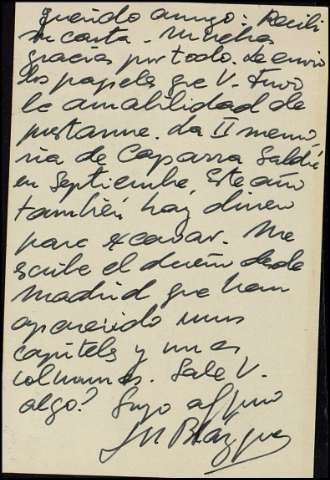 Querido amigo: Recibí
su carta. Muchas
gracias por todo. Le envio
los papeles que V. tuvo
la amabilidad de
prestarme. La II memo
ria de Caparra Saldrá
en Septiembre. Este año
también hay dinero
para excavar. Me
escribe el dueño desde
Madrid que han
aparecido unos
capiteles y unas
columnas. Sabe V.
algo? Suyo affmo
JM Blázquez